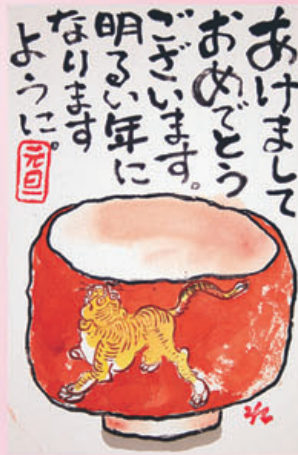 あけまして
おめでとう
ございます。
明るい年に
なります
ように。
元旦